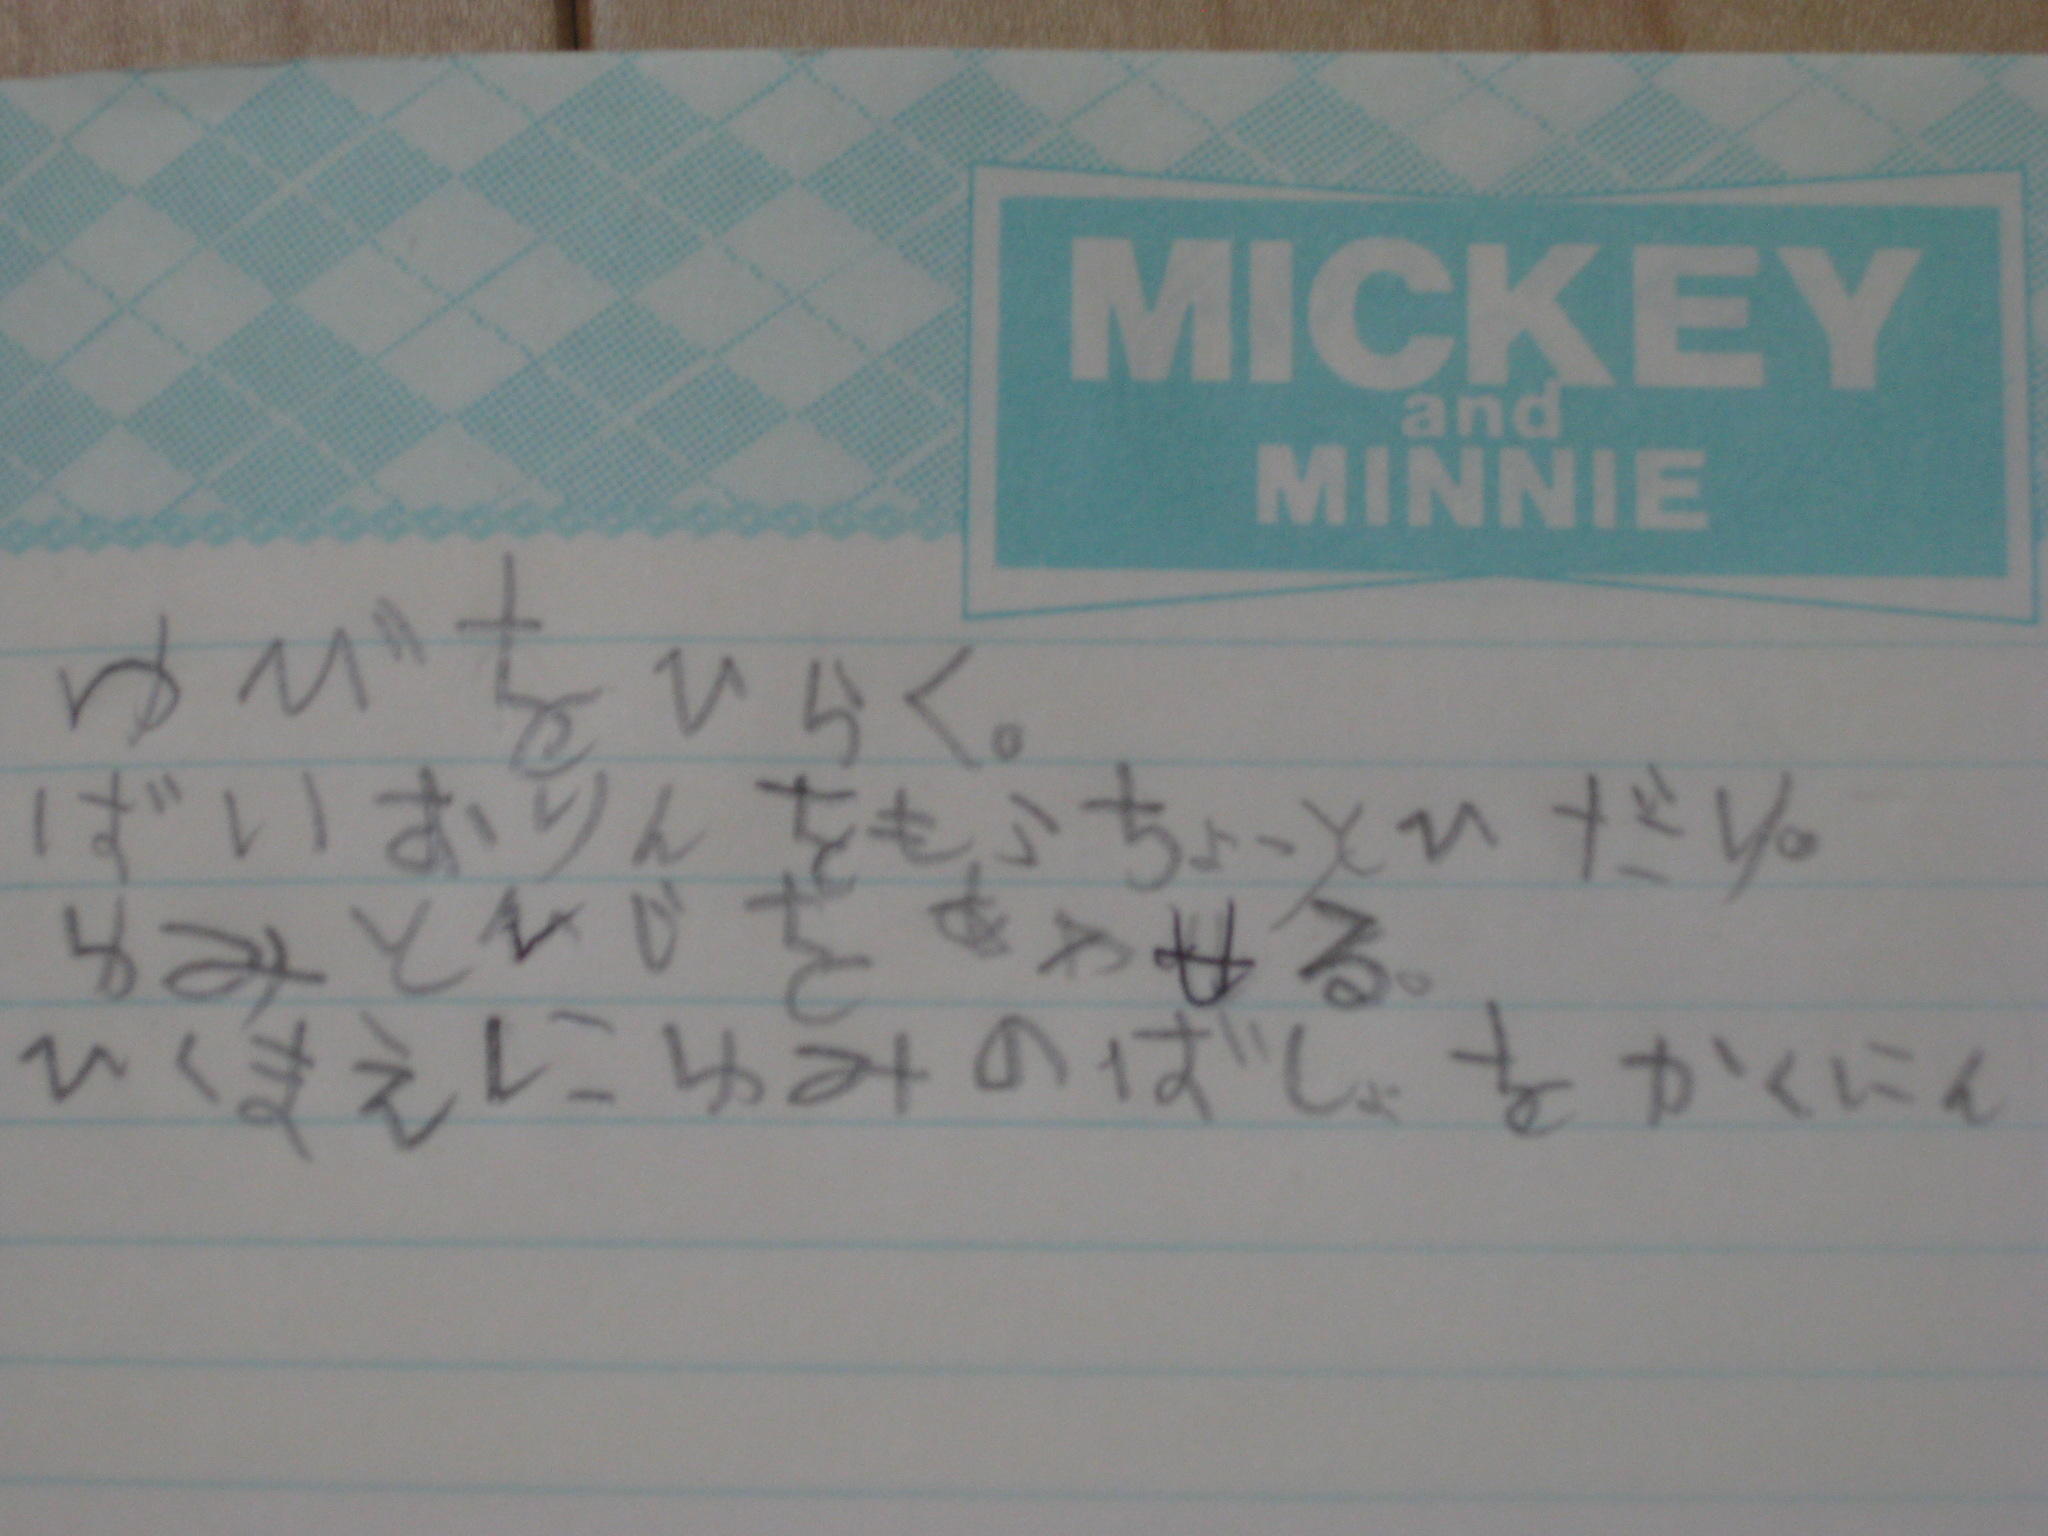 MICKEY
and
MINNIE
ゆびをひらく。
ばいおりんをもうちょーとひだり。
ゆみとひじをあわせる。
ひくまえにゆみのばしょをかくにん